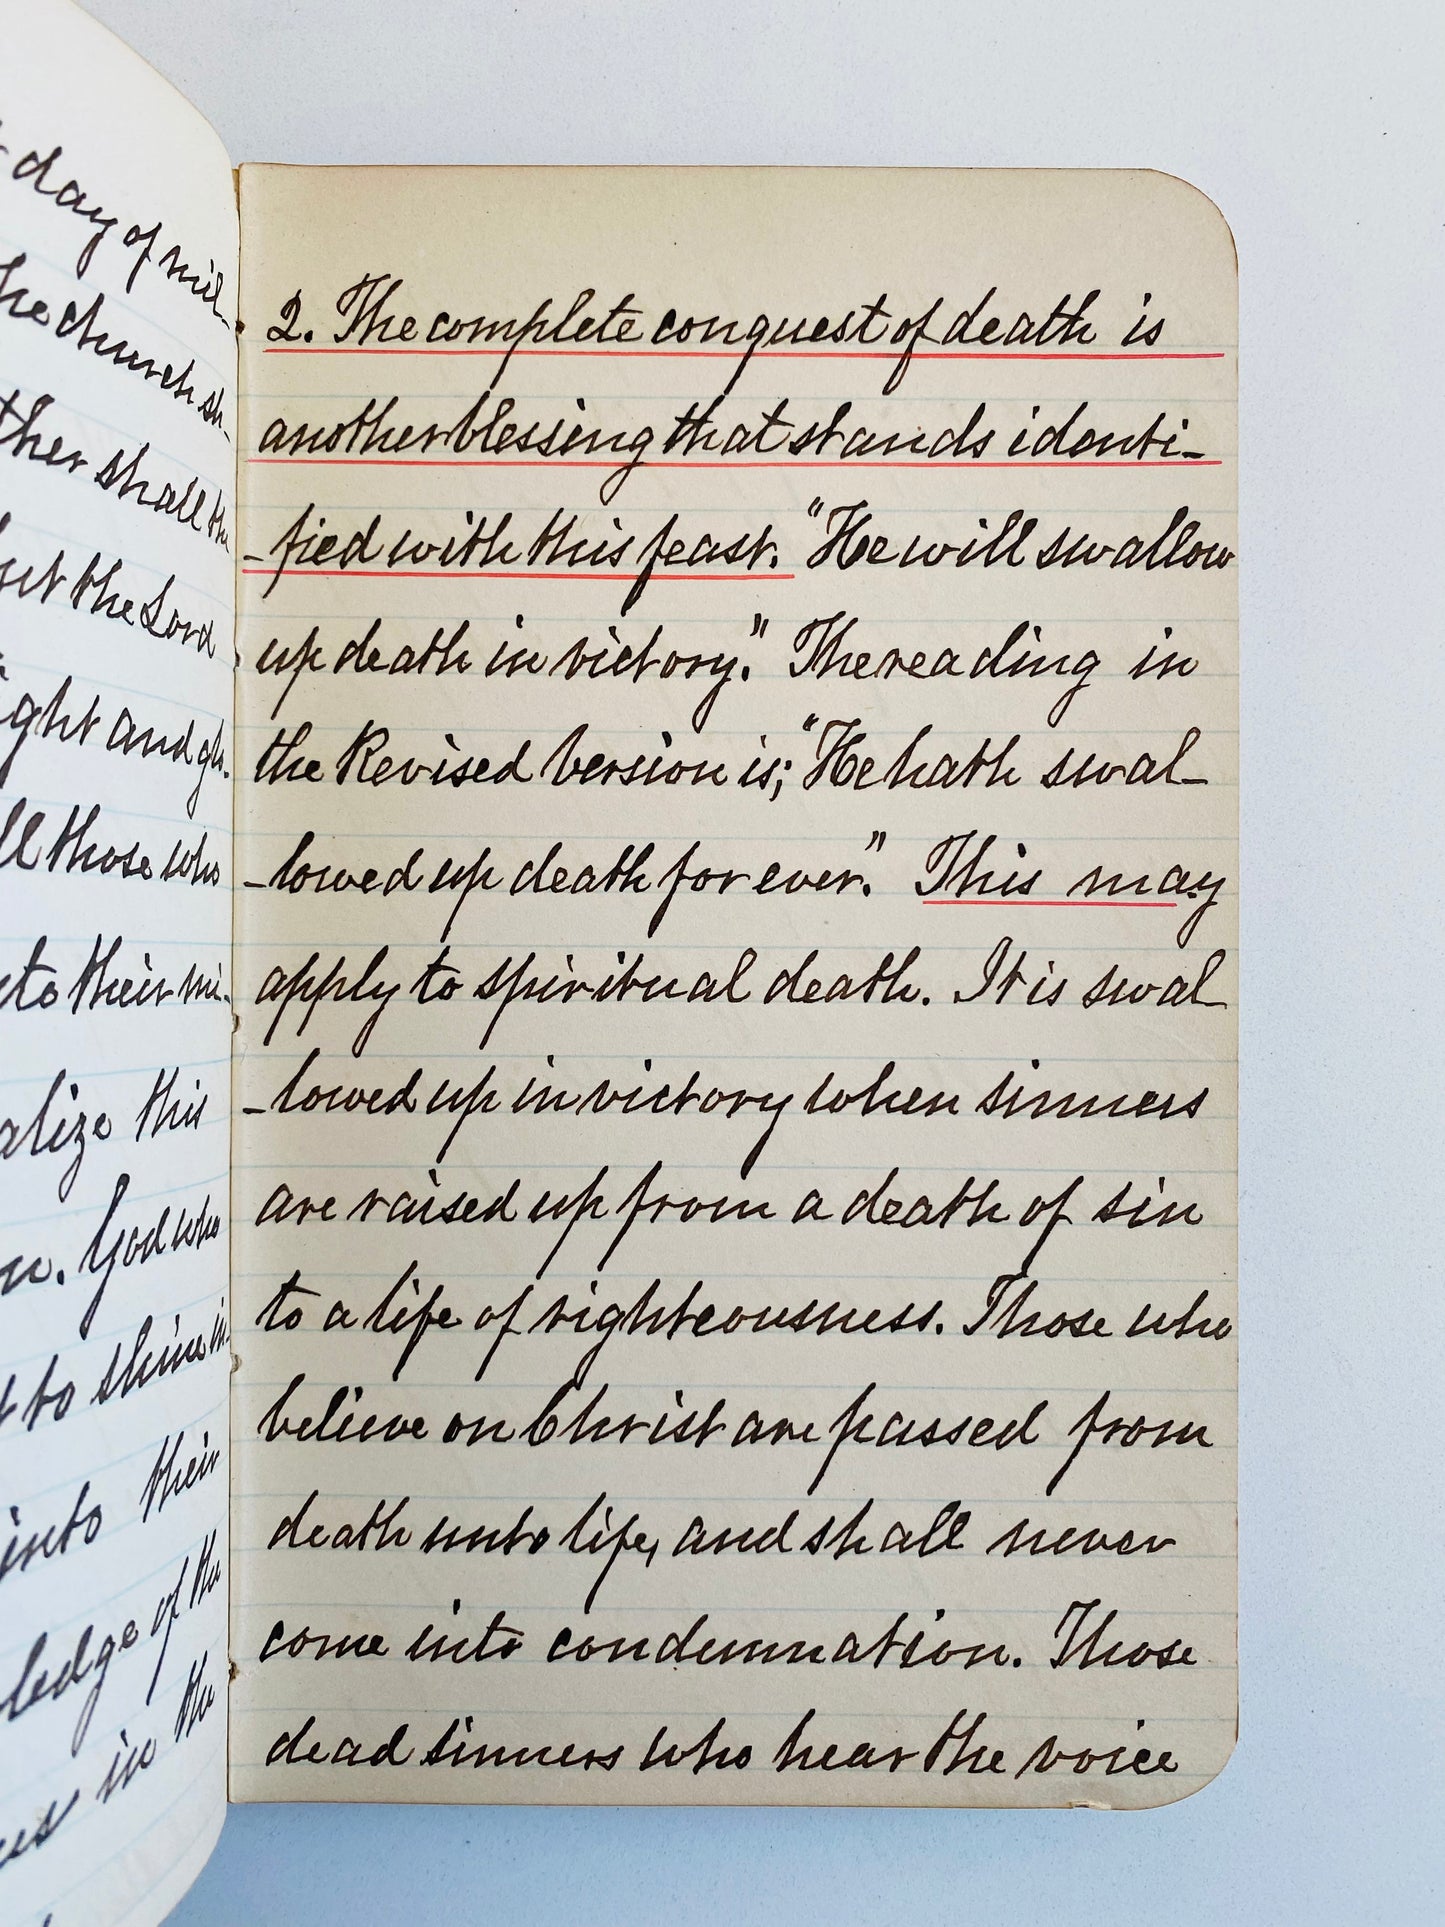 day of mil-
he church sh-
ther shall the
the Lord
ight and gl-
ll those who
to their mi-
alize this
God who
to shine in-
into their
ledge of the
in the
2. The complete conquest of death is
another blessing that stands identi-
-fied with this feast. "He will swallow
up death in victory." The reading in
the Revised Version is; "He hath swal-
-lowed up death for ever." This may
apply to spiritual death. It is swal-
-lowed up in victory when sinners
are raised up from a death of sin
to a life of righteousness. Those who
believe on Christ are passed from
death unto life, and shall never
come into condemnation. Those
dead sinners who hear the voice